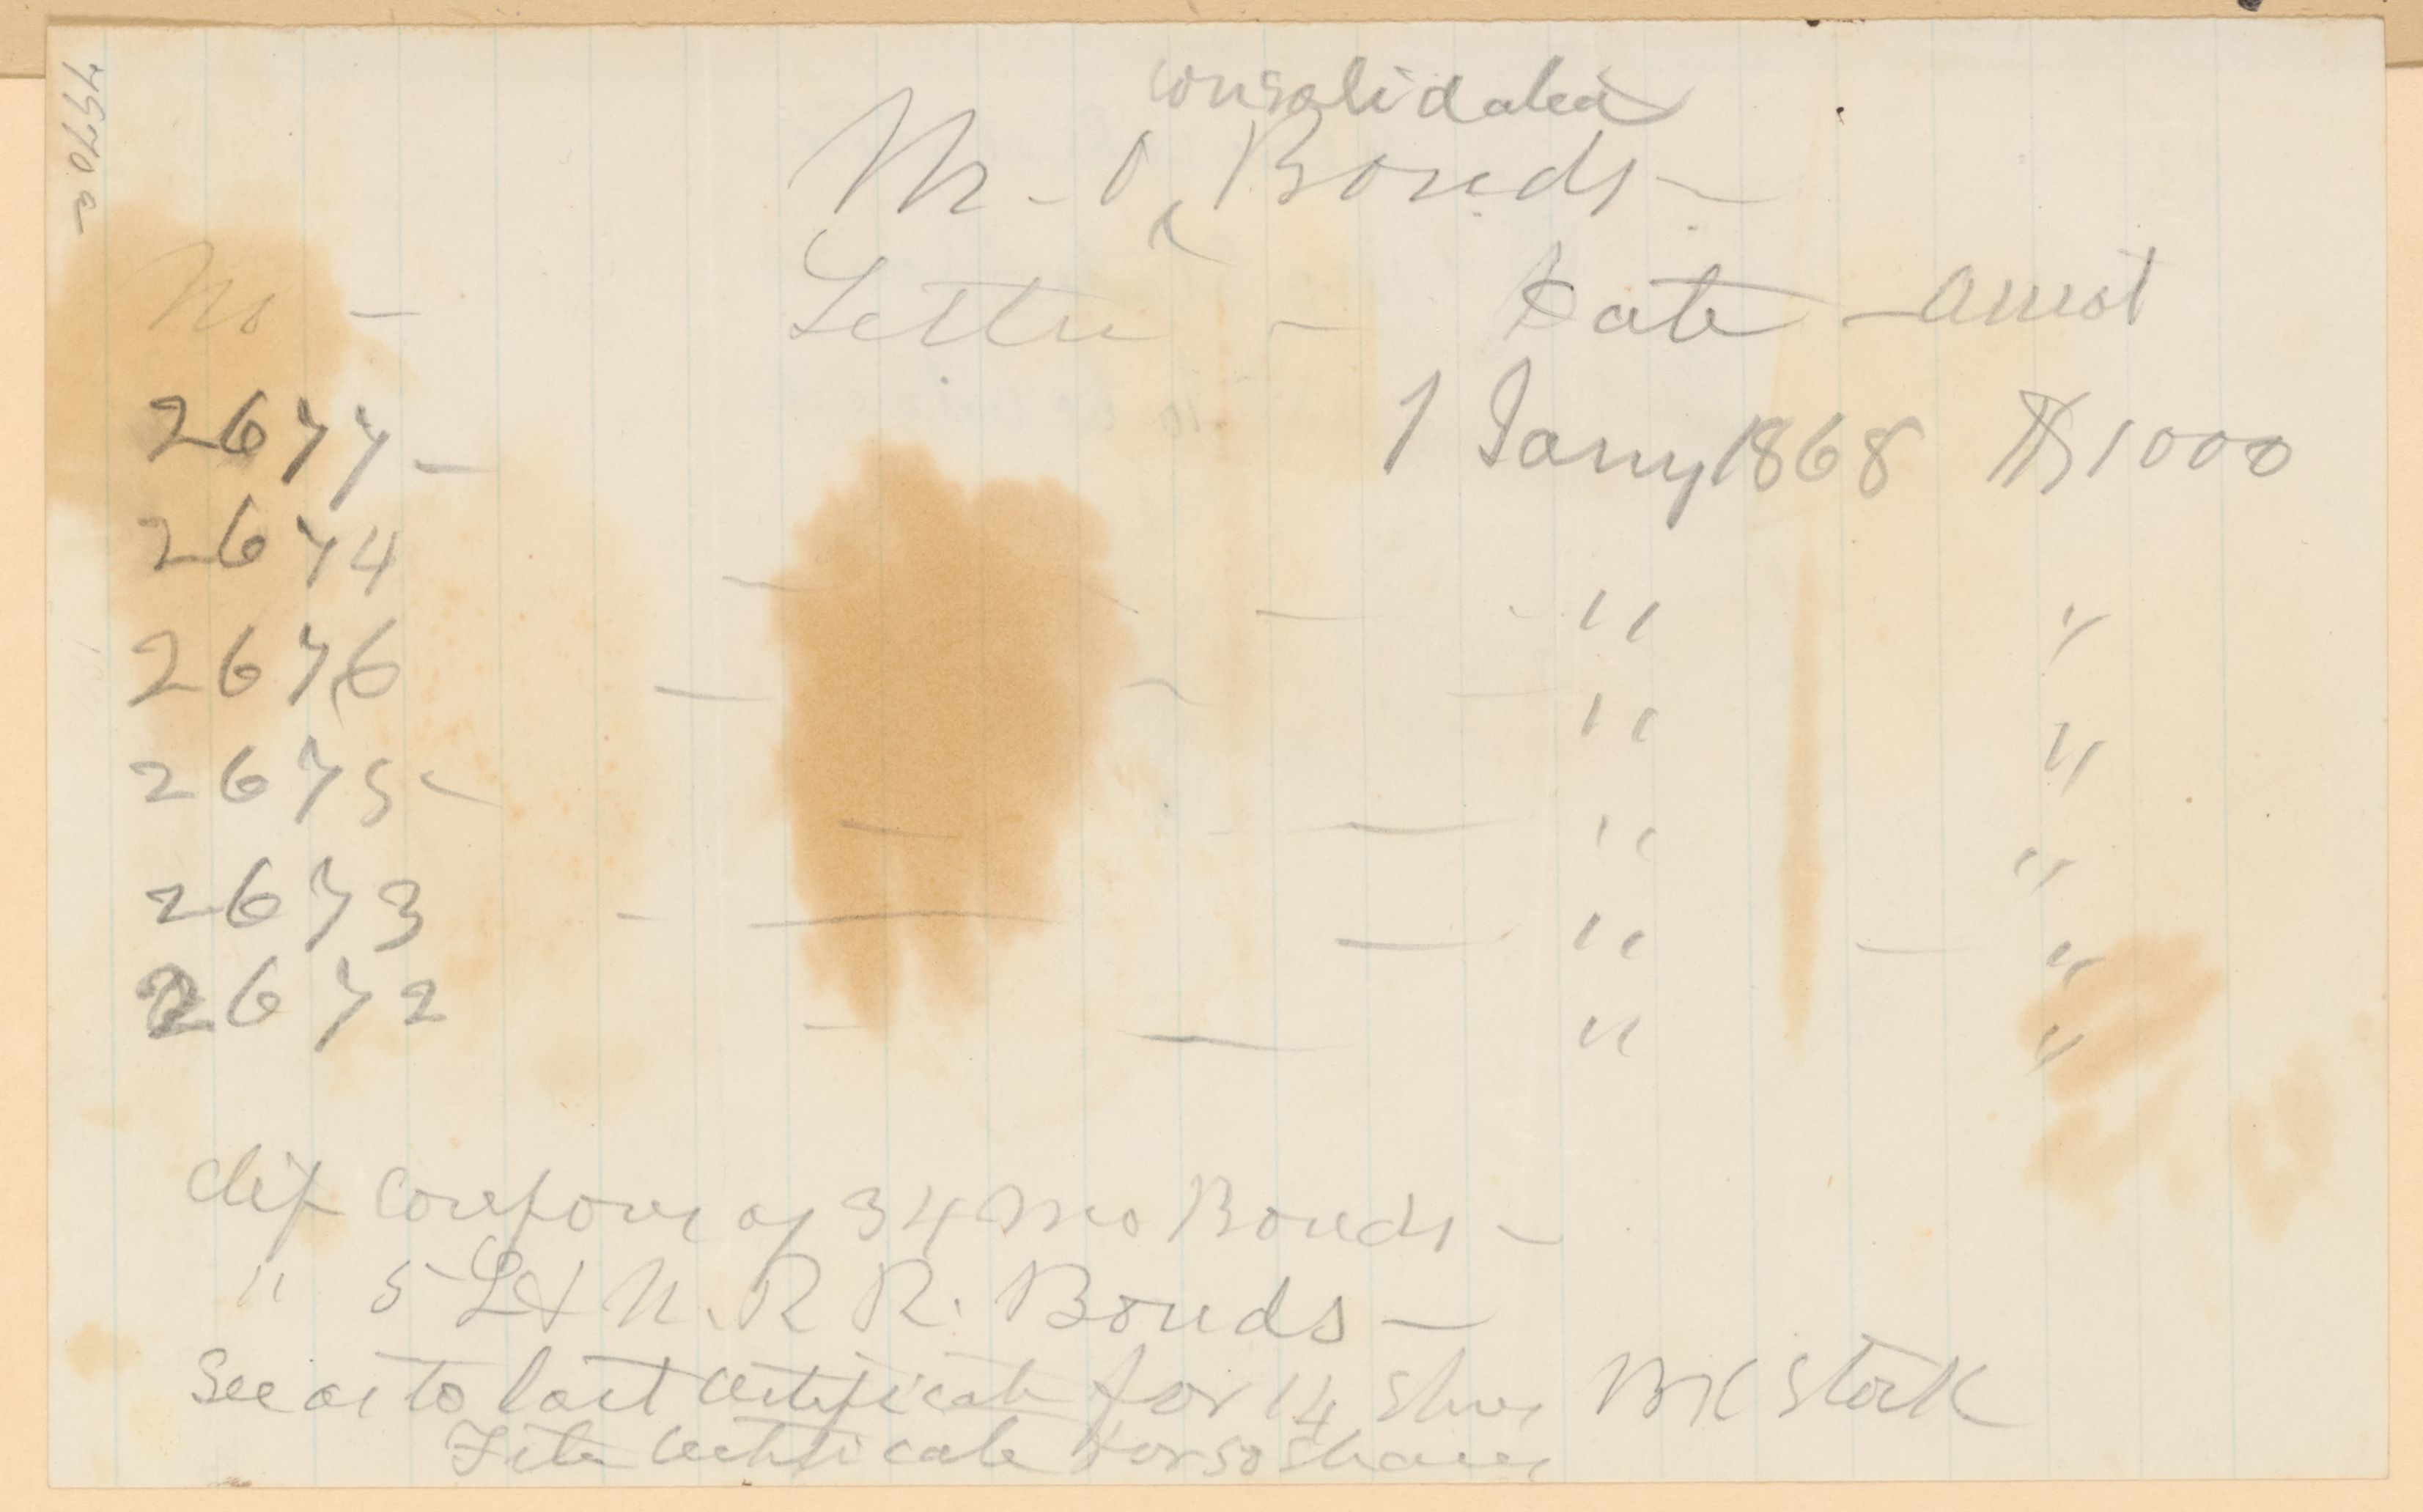 consolidated
M. O. Bonds —
No — Letter — Date — Amot
2677 — 1 Jany 1868 $1000
2674 — — " "
2676 — — " "
2675 — — " "
2673 — — " — "
2672 — — " "
Clip Coupons of 34 Mo Bonds —
" 5 L & N. R R. Bonds —
See as to lost certificate for 14 Shrs BK Stock
certificate for 50 Shares